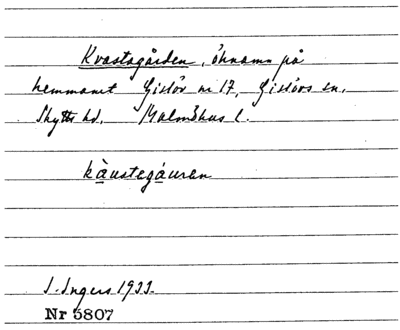 Kvastagården, öknamn på
hemmanet Gislöv nr 17, Gislövs sn.
Skytts hd. Malmöhus l.
kàustegáuren
I. Ingers 1933.
Nr 5807